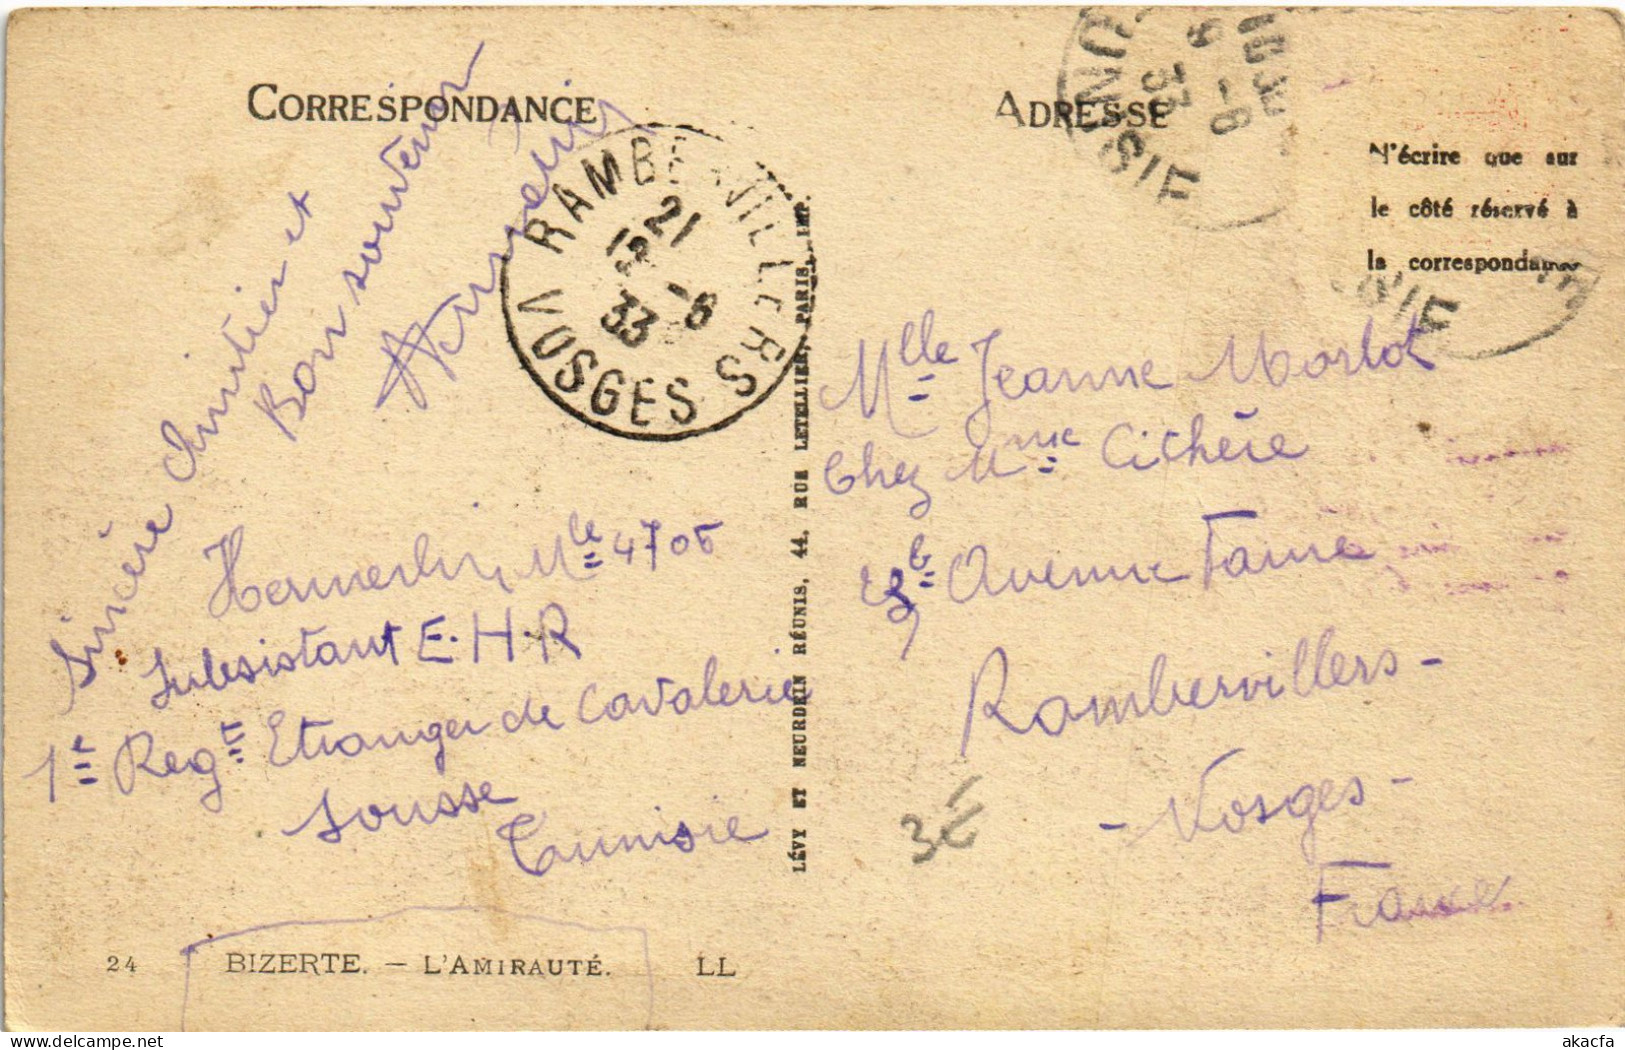 CORRESPONDANCE
ADRESSE
N'écrire que sur
le côté réservé à
la correspondance
Sincère Amitiés et
Bon souvenir
RAMBERVILLERS
21
12 -6
33
VOSGES
9 -6
33
TUNISIE
Mlle Jeanne Morlot
Chez Mme Cichère
Avenue
Rambervillers -
- Vosges -
France
Mle 4705
Subsistant E.H.R
1er Regt Etranger de Cavalerie
Sousse
Tunisie
3€
LÉVY ET NEURDEIN RÉUNIS, 44, RUE LETELLIER, PARIS, IMP.
24 BIZERTE. - L'AMIRAUTÉ. LL
akacfa